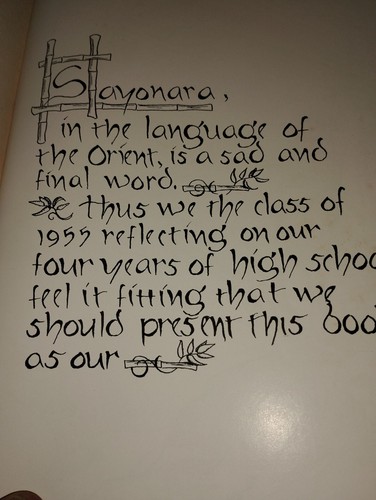 Sayonara,
in the language of
the Orient, is a sad and
final word.
Thus we the class of
1955 reflecting on our
four years of high schoo
feel it fitting that we
should present this boo
as our